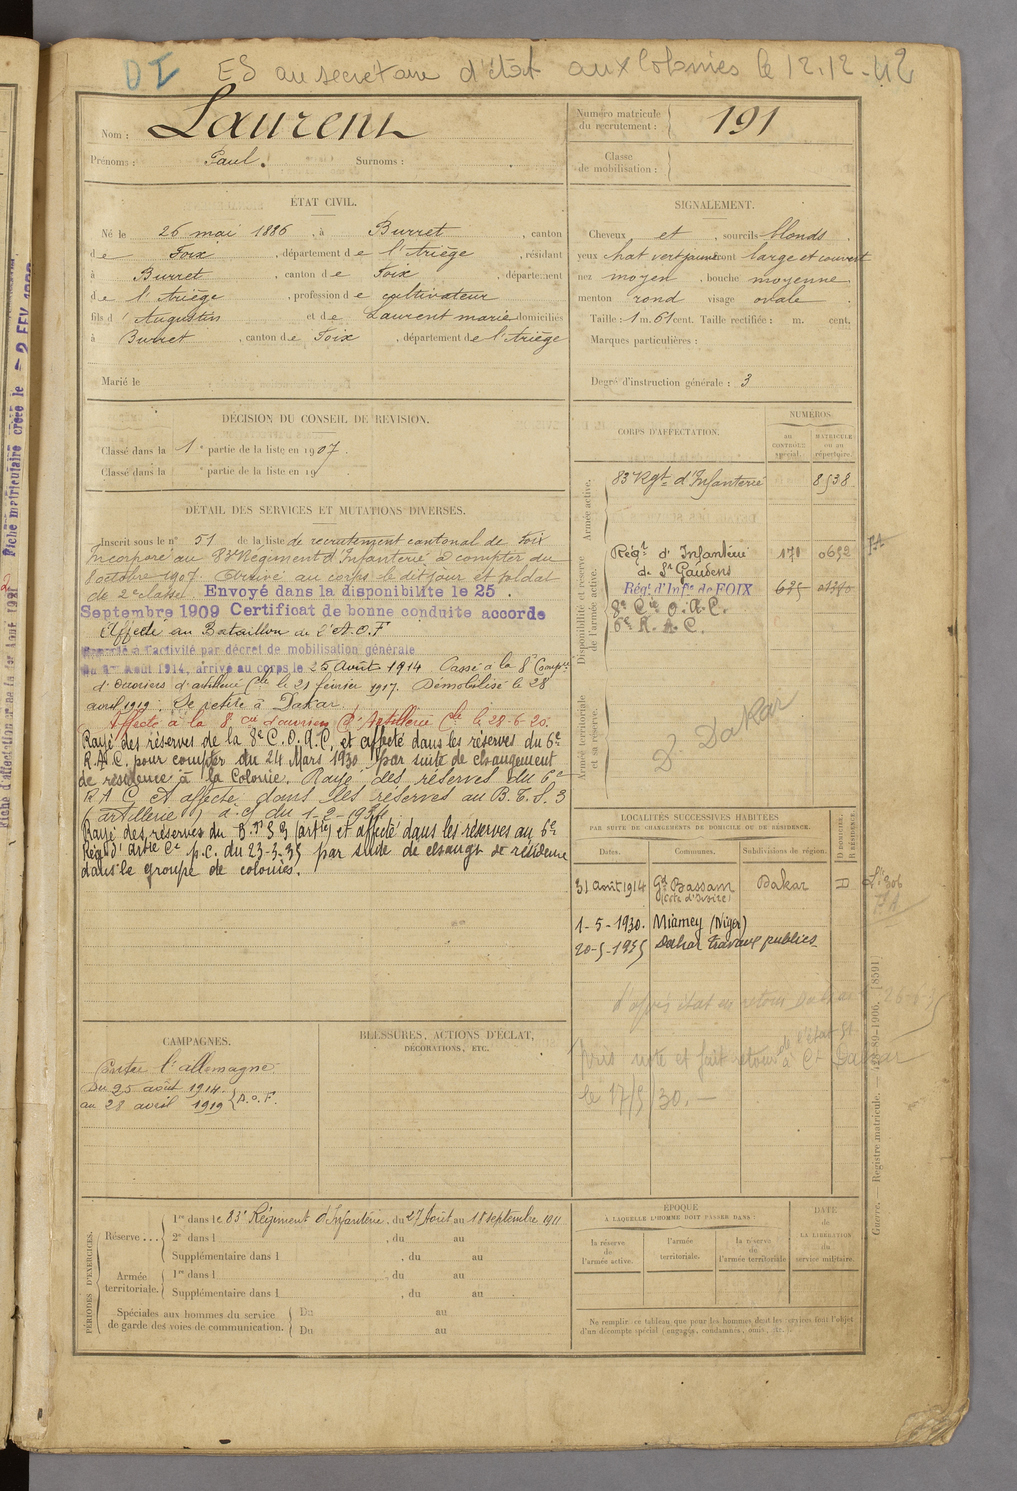 DI ES au secretaire d'état aux Colonies le 12.12.42
Nom : Laurent
Prénoms : Paul. Surnoms :
Numéro matricule du recrutement : 191
Classe de mobilisation :
ÉTAT CIVIL.
Né le 26 mai 1886, à Burret, canton
de Foix, département de l'Ariège, résidant
à Burret, canton de Foix, département
de l'Ariège, profession de cultivateur
fils d'Augustin et de Laurent marie domiciliés
à Burret, canton de Foix, département de l'Ariège
Marié le
SIGNALEMENT.
Cheveux et, sourcils blonds.
yeux front large et couvert
nez moyen, bouche moyenne
menton rond visage ovale.
Taille : 1 m. 61 cent. Taille rectifiée : m. cent.
Marques particulières :
Degré d'instruction générale : 3
DÉCISION DU CONSEIL DE REVISION.
Classé dans la 1e partie de la liste en 1907.
Classé dans la e partie de la liste en 19
DÉTAIL DES SERVICES ET MUTATIONS DIVERSES.
Inscrit sous le n° 51 de la liste de recrutement cantonal de Foix
Incorporé au 83e Régiment d'Infanterie à compter du
8 octobre 1907. Arrivé au corps le dit jour et soldat
de 2e classe. Envoyé dans la disponibilité le 25
Septembre 1909 Certificat de bonne conduite accordé
Affecté au Bataillon de l'A.O.F
Rappelé à l'activité par décret de mobilisation générale
du 1er Août 1914, arrivé au corps le 25 Août 1914. Passé à la 8e Compie
d'ouvriers d'artillerie Cle le 21 février 1917. Démobilisé le 28
avril 1919. Se retire à Dakar.
Affecté à la 8e cie d'ouvriers d'Artillerie Cle le 28-6-20.
Rayé des réserves de la 8e C.O.A.C. et affecté dans les réserves du 6e
R.A.C. pour compter du 24 Mars 1930 par suite de changement
de résidence à la Colonie. Rayé des réserves du 6e
R A C et affecté dans les réserves au B.T.S. 3
(artillerie) a.c/ du 1-2-1931
Rayé des réserves du B.T.S 3 (artie) et affecté dans les réserves au 6e
Régt d'artie Cle p.c. du 23-3-35 par suite de changt de résidence
dans le groupe de colonies.
CORPS D'AFFECTATION.
NUMÉROS
au CONTRÔLE spécial.
MATRICULE ou au répertoire.
Armée active.
83 Rgt d'Infanterie 8538
Disponibilité et réserve de l'armée active.
Régt d'Infanterie de St Gaudens 171 0652
Régt d'Infie de FOIX 695
8e Cie O.A.C.
6e R.A.C.
Armée territoriale et sa réserve.
D. Dakar
LOCALITÉS SUCCESSIVES HABITÉES
PAR SUITE DE CHANGEMENTS DE DOMICILE OU DE RÉSIDENCE.
Dates. Communes. Subdivisions de région. D DOMICILE. R RÉSIDENCE.
31 Août 1914 Gd Bassam (Côte d'Ivoire) Dakar D
1-5-1930. Niamey (Niger)
20-5-1935 Dakar travaux publics
le 17/5/30.
CAMPAGNES.
Contre l'allemagne
Du 25 août 1914.
au 28 avril 1919 A.O.F.
BLESSURES, ACTIONS D'ÉCLAT,
DÉCORATIONS, ETC.
PÉRIODES D'EXERCICES.
Réserve ... 1re dans le 83e Régiment d'Infanterie, du 27 Août au 18 septembre 1911
2e dans l , du au
Supplémentaire dans l , du au
Armée territoriale. 1re dans l , du au
Supplémentaire dans l , du au
Spéciales aux hommes du service de garde des voies de communication. Du au
Du au
ÉPOQUE
À LAQUELLE L'HOMME DOIT PASSER DANS :
la réserve de l'armée active.
l'armée territoriale.
la réserve de l'armée territoriale
DATE de LA LIBÉRATION du service militaire.
Ne remplir ce tableau que pour les hommes dont les services font l'objet
d'un décompte spécial (engagés, condamnés, omis, etc.).